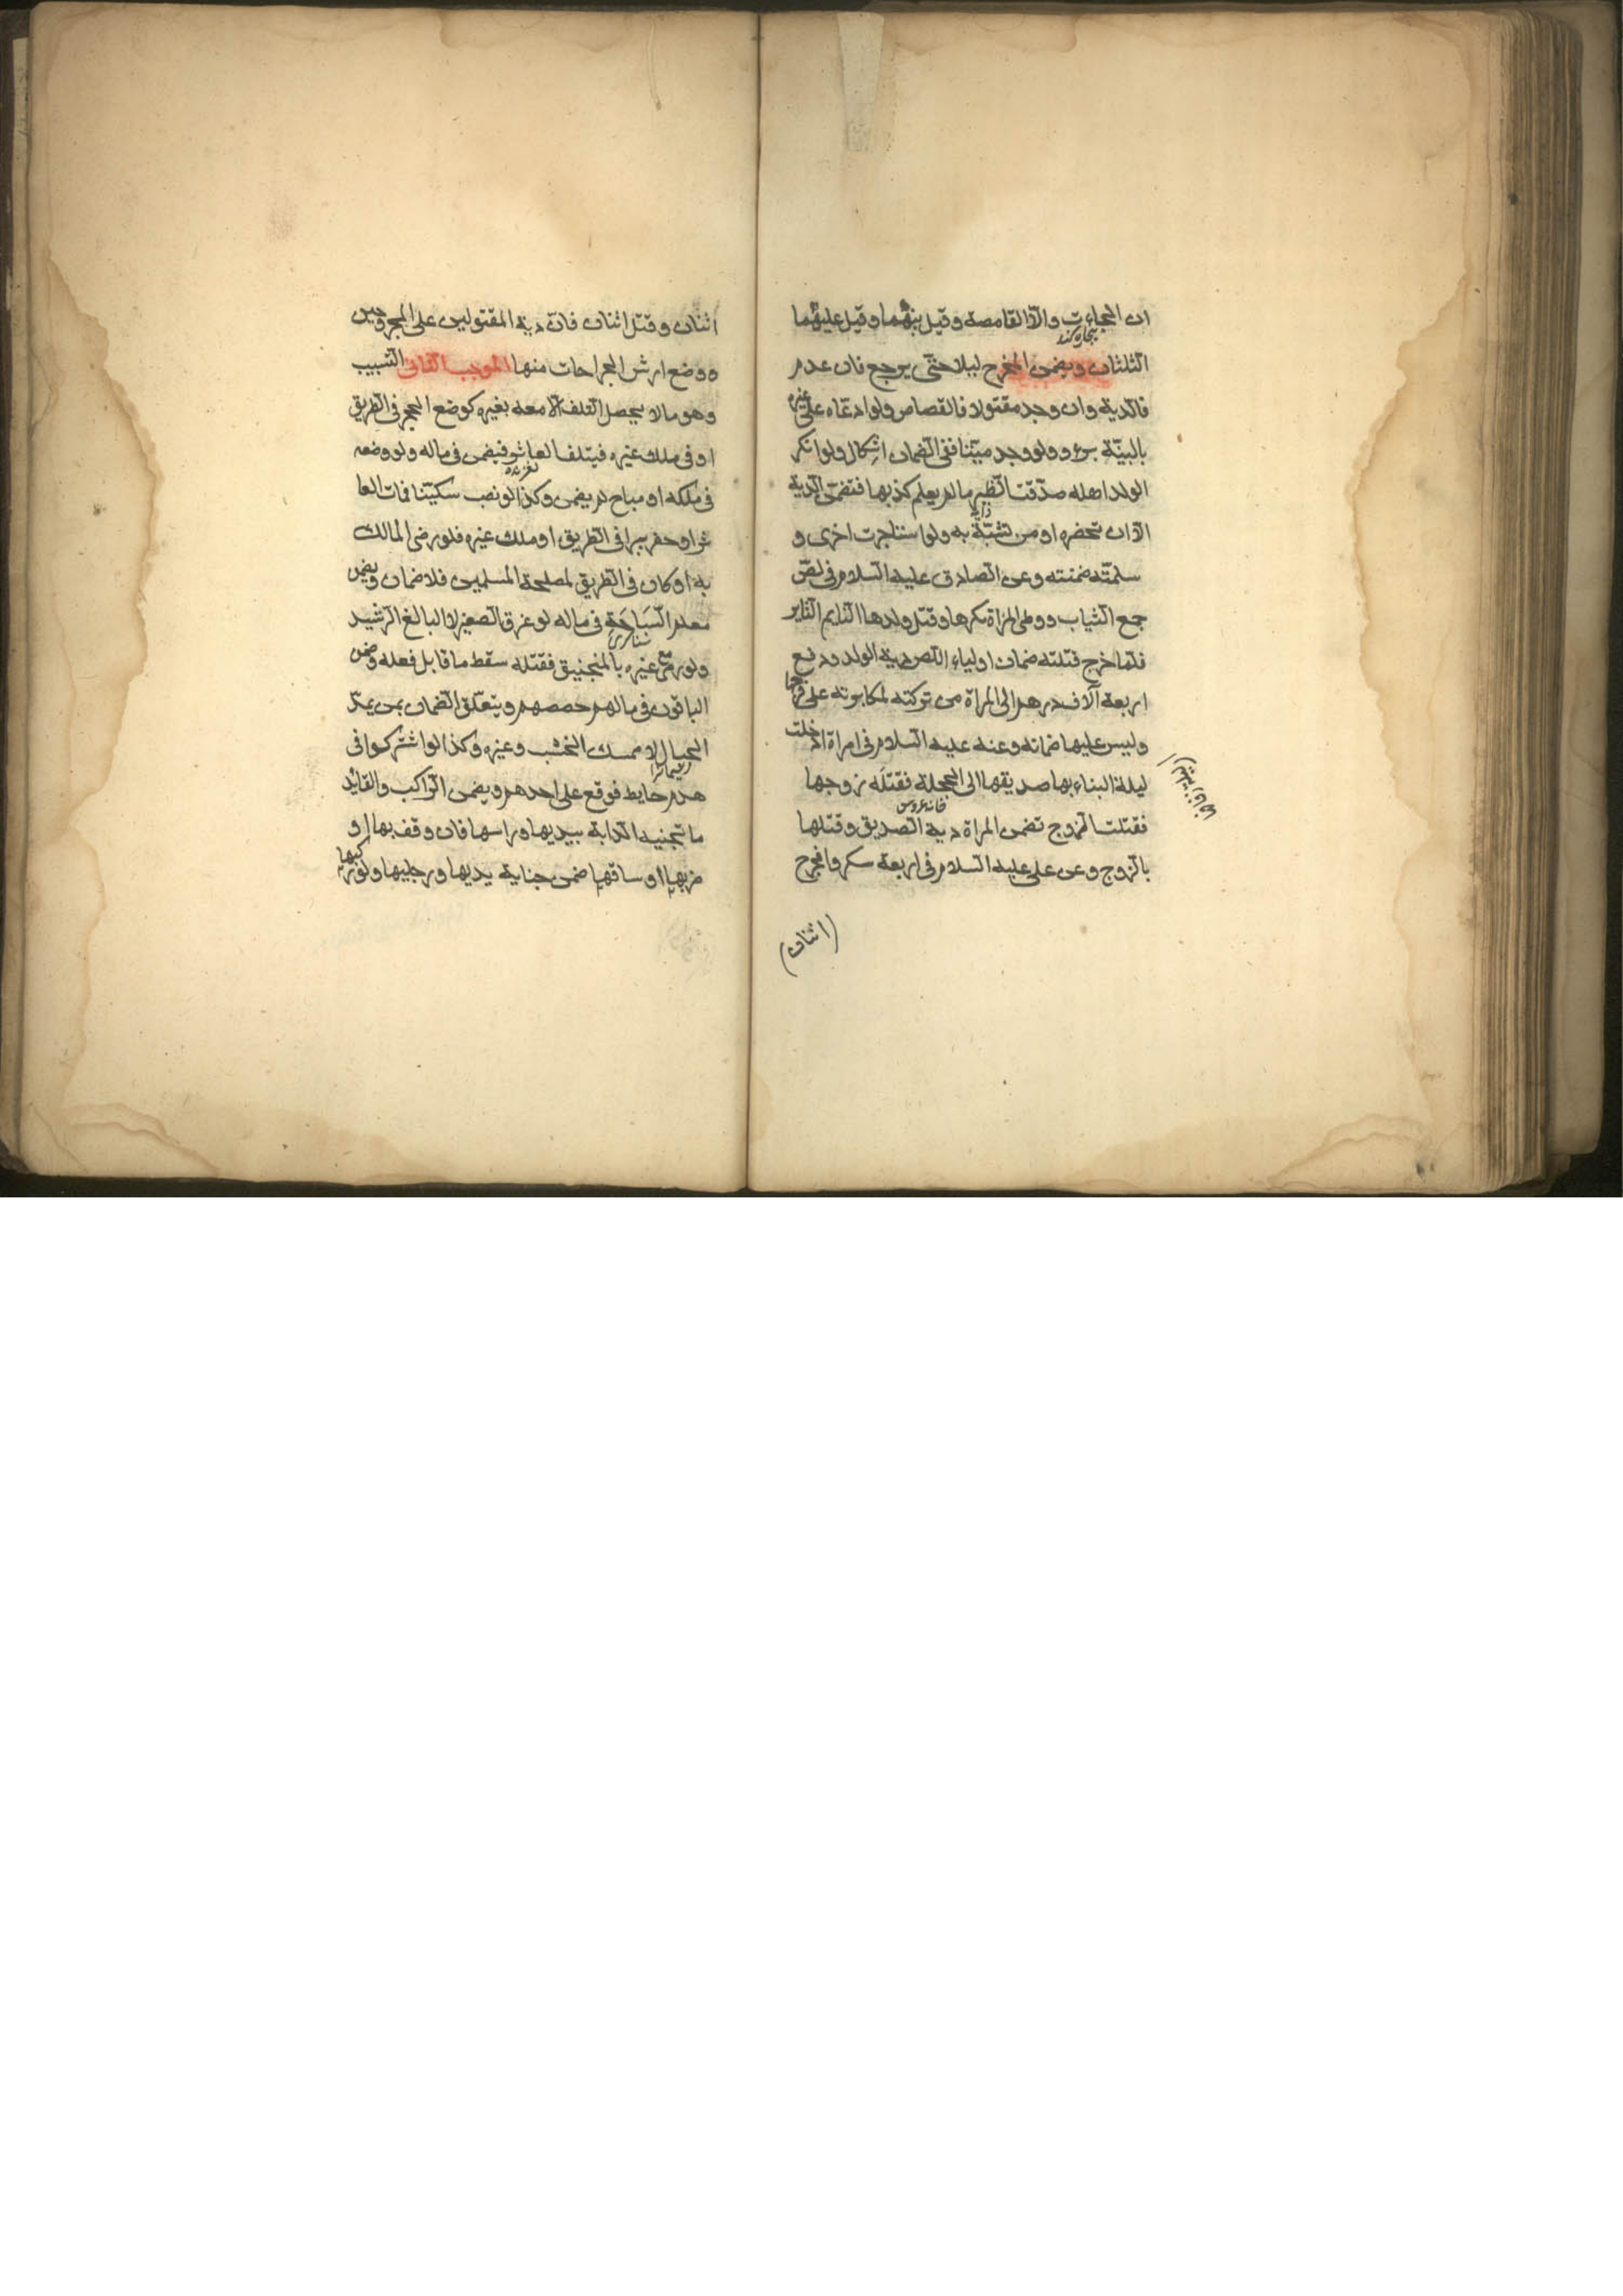 ان الجاءت والا القامصة وقيل بينهما وقيل عليهما
بیچاره کند
الثلثان ويضمن المخرج ليلا حتى يرجع فان عدم
فالدية وان وجد مقتولا فالقصاص ولو ادعاه على غيره
بالبينة برء ولو وجد ميتا ففى الضمان اشكال ولو انكر
الولد اهله صدقت الظير ما لم يعلم كذبها فتضمن الدية
دایه
الا ان تحضره او من تشبة به ولو استاجرت اخرى و
سلمته ضمنته وعن الصادق عليه السلام فى لص
جمع الثياب ووطى المراة كرها وقتل ولدها الثاير
فلما خرج قتلته ضمان اولياء اللص دية الولد ودفع
اربعة آلاف درهم الى المراة من تركته لمكابرته على فرجها
وليس عليها ضمانه وعنه عليه السلام فى امراة ادخلت
ليلة البناء بها صديقها الى الحجلة فقتله زوجها
خانه عروس
فقتلت الزوج تضمن المراة دية الصديق وقتلها
بالزوج وعن على عليه السلام فى اربعة سكروا فجرح
(اثنان)
اثنان وقتل اثنان فان دية المقتولين على المجروحين
ووضع ارش الجراحات منها الموجب الثانى التسبيب
وهو ما لا يحصل التلف الا معه بغيره كوضع الحجر فى الطريق
او فى ملك غيره فيتلف العاثر فيضمن فى ماله ولو وضعه
لغزنده
فى ملكه او مباح لم يضمن وكذا لو نصب سكينا فات العا
ثر او حفر بيرا فى الطريق او ملك غيره فلو رضى المالك
به او كان فى الطريق لمصلحة المسلمين فلا ضمان ويضمن
معلم السباحة فى ماله لو غرق الصغير لا البالغ الرشيد
شناکری
ولو رمى مع غيره بالمنجنيق فقتله سقط ما قابل فعله وضمن
الباقون فى مالهم حصصهم ويتعلق الضمان بمن يمد
الحبال لا ممسك الخشب وغيره وكذا لو اشتركوا فى
هدم حايط فوقع على احدهم ويضمن الراكب والقايد
ما تجنيه الدابة بيديها وراسها فان وقف بها او
ضربها او ساقها ضمن جناية يديها ورجليها ولو ركبها